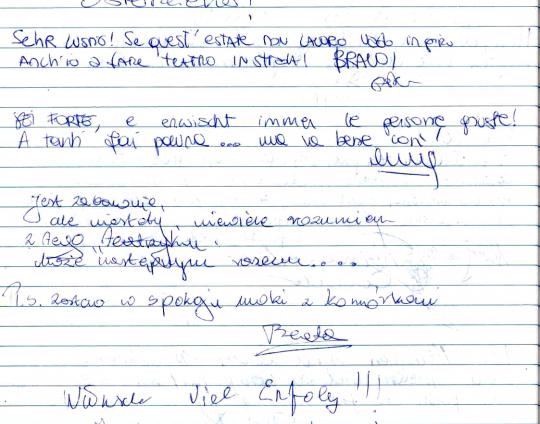 SEHR LUSTIG! SE QUEST' ESTATE NON LAVORO VADO IN GIRO
ANCH'IO A FARE TEATRO IN STRADA! BRAVO!
SEI FORTE, e erwischt immer le persone giuste!
A tanti fai paura ... ma va bene così!
Jest zabawnie,
ale niestety, niewiele rozumiem
z tego
Może następnym razem....
P.s. zostaw w spokoju
z komórkami
Beata
Wünsche Viel Erfolg!!!